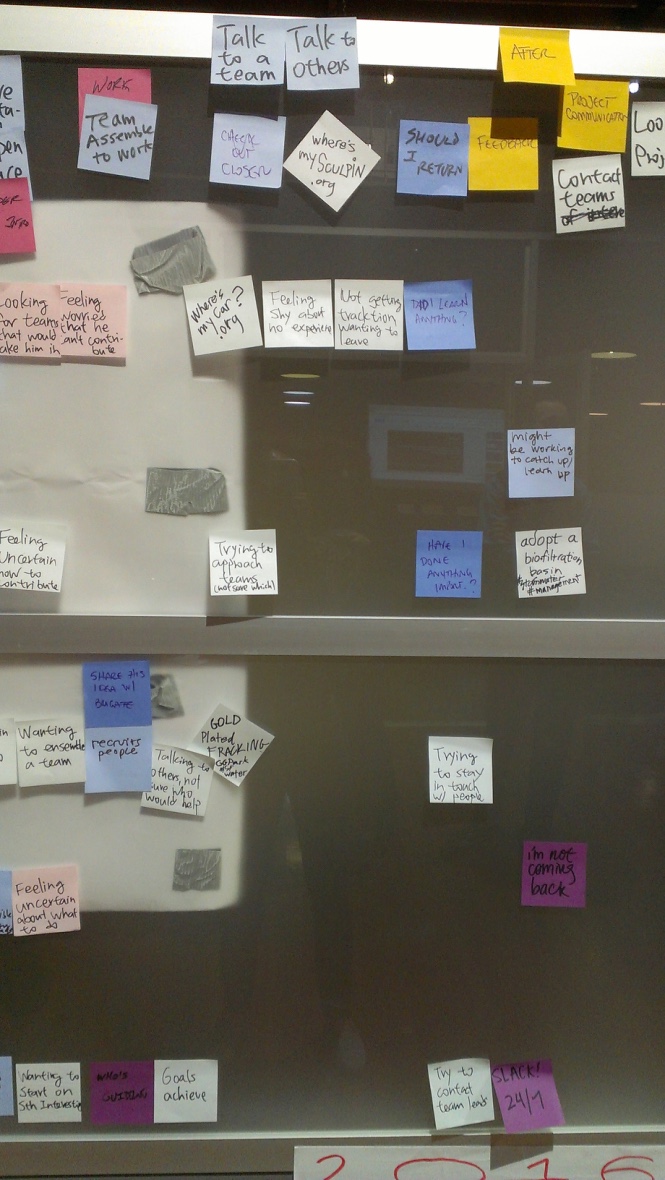 Talk
to a
team
Talk to
others
AFTER
WORK
Team
Assemble
to work
CHECK
OUT
CLOSELY
where's
my SCULPIN
.org
SHOULD
I
RETURN
FEEDBACK
PROJECT
COMMUNICATION
Contact
teams
Loo
Proj
INFO
Looking
for teams
that would
take him in
Feeling
worried
that he
can't contri-
bute
Where's
my Car?
.org
Feeling
Shy about
no experience
Not getting
tracktion
wanting to
leave
DID I LEARN
ANYTHING?
might
be working
to catch up/
learn up
Feeling
Uncertain
how to
contribute
Trying to
approach
teams
(not sure which)
HAVE I
DONE
ANYTHING
adopt a
biofiltration
basin
#management
SHARE THIS
IDEA W/
BRIGADE
Wanting
to ensemble
a team
recruits
people
Talking to
others, not
sure who
would help?
GOLD
Plated
FRACKING
water
Trying
to stay
in touch
w/ people
i'm not
coming
back
Feeling
uncertain
about what
to do
Wanting to
Start on
Sth Interesting
WHO'S
GUIDING
Goals
achieve
Try to
contact
team leads
SLACK!
24/7
2016